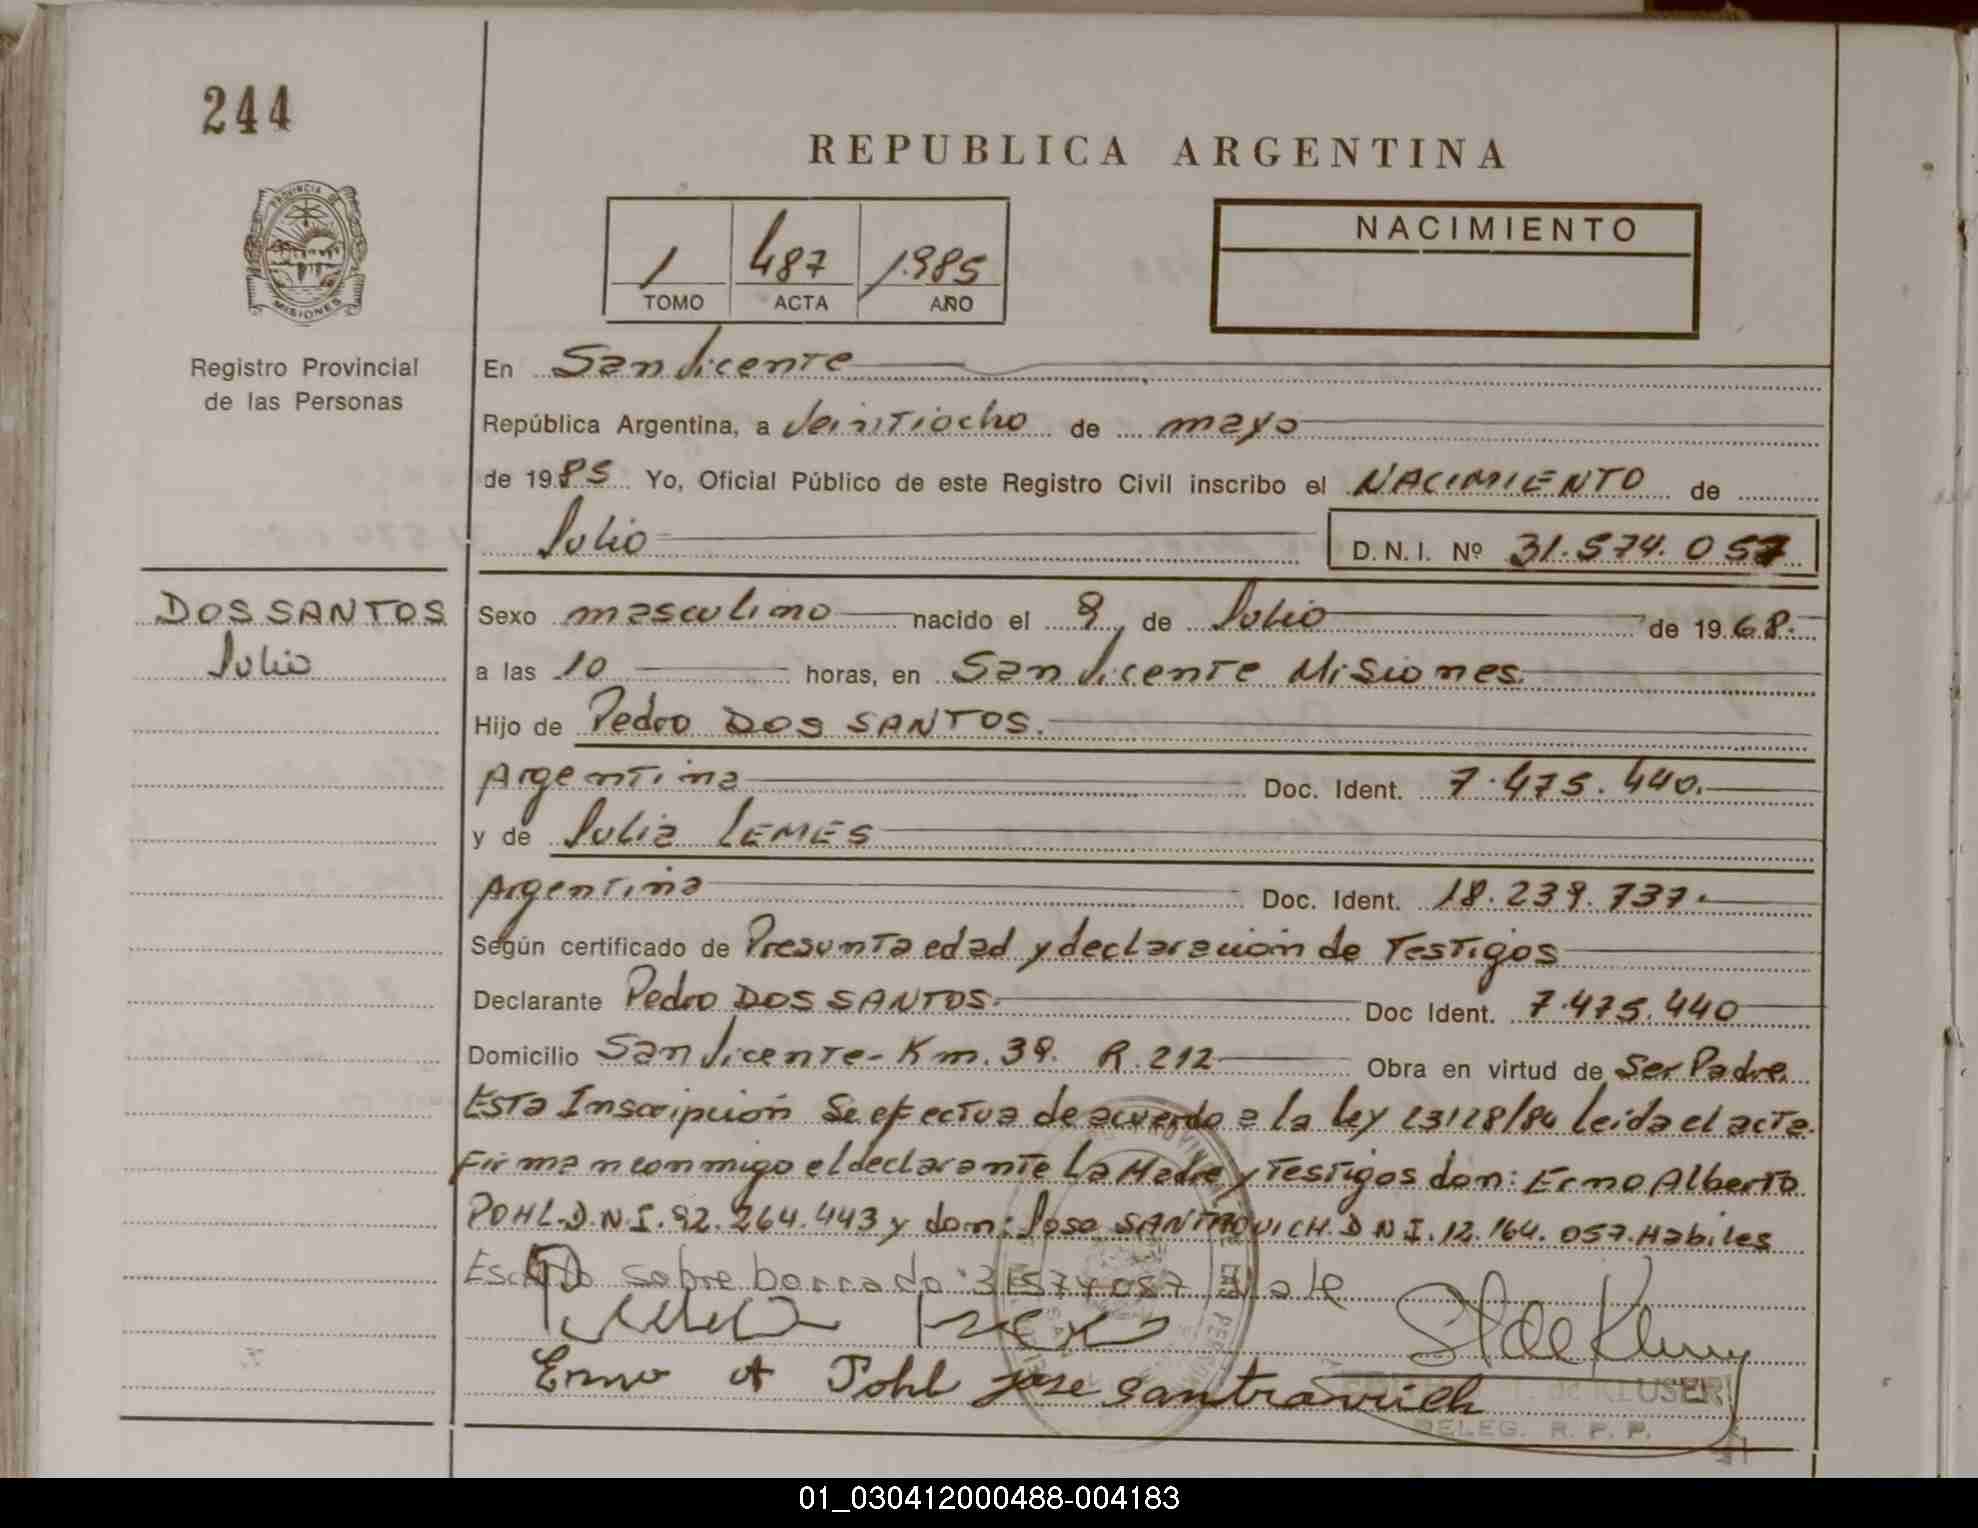 244
REPUBLICA ARGENTINA
PROVINCIA DE
MISIONES
Registro Provincial
de las Personas
1 487 1.985
TOMO ACTA AÑO
NACIMIENTO
En San Vicente
República Argentina, a Veintiocho de mayo
de 1985 Yo, Oficial Público de este Registro Civil inscribo el NACIMIENTO de
Julio D.N.I. Nº 31.574.057
DOS SANTOS
Julio
Sexo masculino nacido el 9 de Julio de 1968.
a las 10 horas, en San Vicente Misiones.
Hijo de Pedro DOS SANTOS.
Argentina Doc. Ident. 7.475.440.
y de Julia LEMES
Argentina Doc. Ident. 18.239.737.
Según certificado de Presunta edad y declaración de Testigos
Declarante Pedro DOS SANTOS. Doc Ident. 7.475.440
Domicilio San Vicente-Km.39. R.212 Obra en virtud de Ser Padre
Esta Inscripción Se efectua de acuerdo a la ley 23128/84 leida el acta.
Firman conmigo el declarante La Madre y Testigos don: Erno Alberto
POHL-D.N.I.92.264.443 y don: Jose SANTROVICH. D N I. 12.164.057. Habiles
Escrito sobre borrado: 31574057 Vale
Erno A Pohl Jose Santravich
de KLUSER
DELEG. R. P. P.
01_030412000488-004183